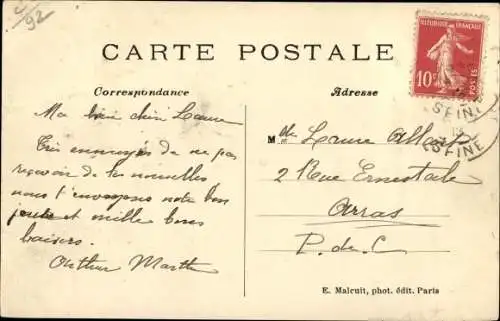 C/92
CARTE POSTALE
Correspondance
Adresse
RÉPUBLIQUE FRANÇAISE
10c
POSTES
SEINE
SEINE
Ma bien chère Laure
Très ennuyés de ne pas
reçevoir de tes nouvelles
nous t'envoyons notre bon
et mille bons
baisers.
Arthur Marthe
Mlle Laure
2 Rue Ernestale
Arras
P. de C
E. Malcuit, phot. édit. Paris